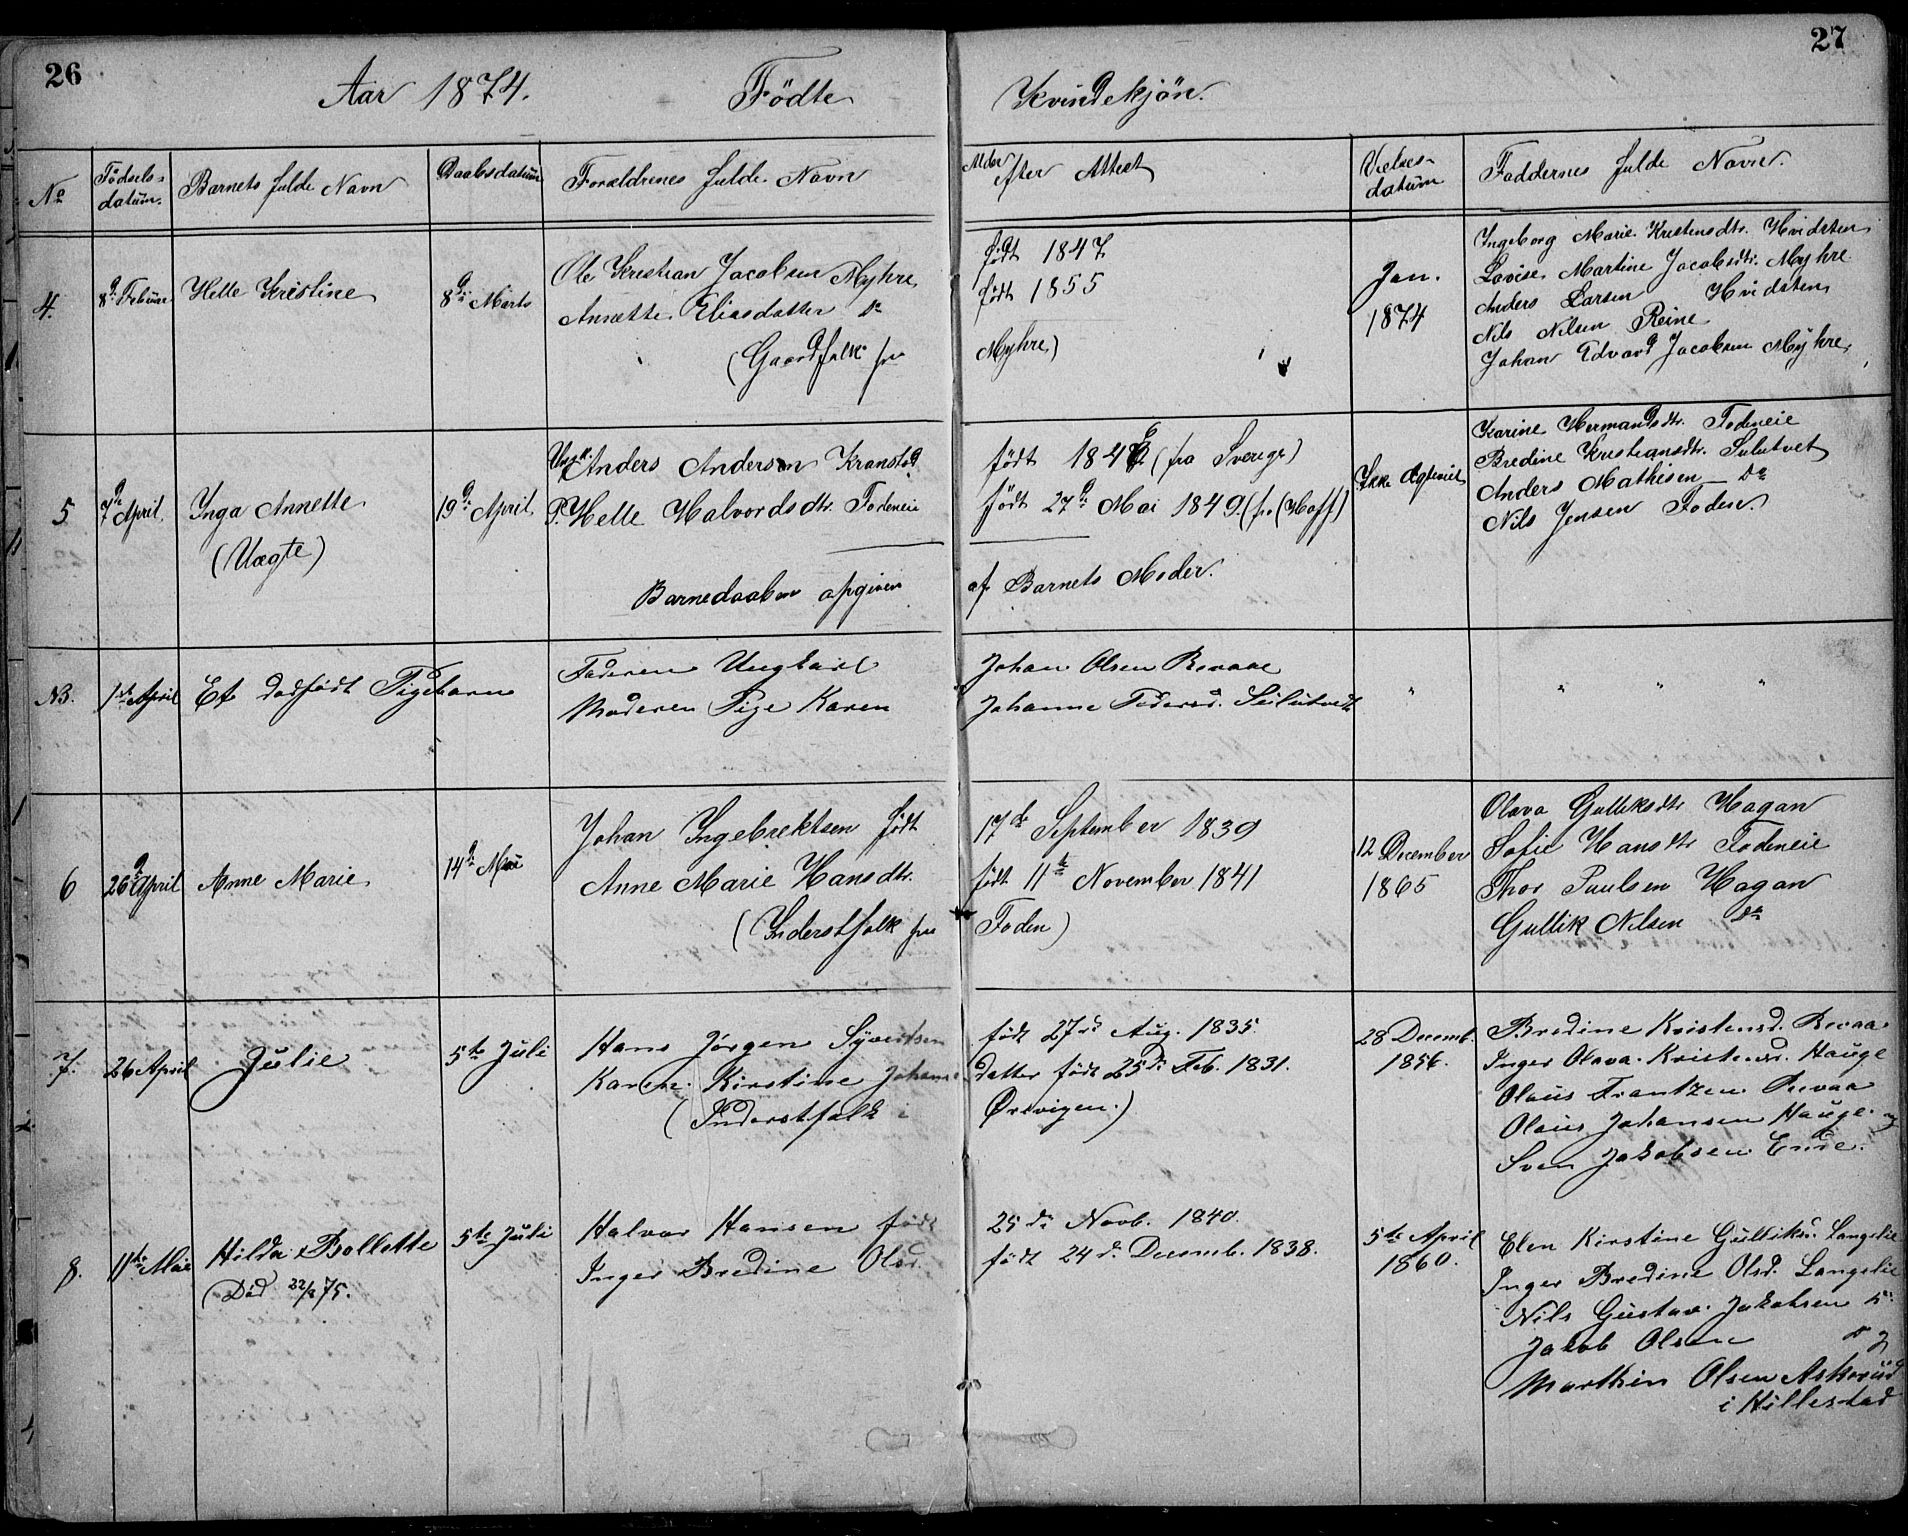 26
27
Aar 1874. Födte Kvindekjön.
No
Födsels-
datum.
Barnets fulde Navn
Daabsdatum
Forældrenes fulde Navn
Alder efter Attest
Vielses-
datum
Faddernes fulde Navn.
4.
8de Februar
Helle Kristine
8de Marts
Ole Kristian Jacobsen Myhre
Annette Eliasdatter do
(Gaardfolk fra
født 1847
født 1855
Myhre)
Jan.
1874
Ingeborg Marie Kristensdtr. Hvidsten
Lovise Martine Jacobsdtr. Myhre
Anders Larsen Hvidsten
Nils Nilsen Reine
Johan Edvard Jacobsen Myhre
5
7de April
Inga Annette
(Uægte)
19de April
Ungk. Anders Anderson Kranstad
P. Helle Halvordsdtr. Fodeneie
Barnedaaben opgiven
født 1846 (fra Sverige)
født 27de Mai 1849 (fra (Hoff)
af Barnets Moder.
Ikke Ægteviet
Karine Hermandsdtr. Fodeneie
Bredine Kristiansdtr. Sulutvet
Anders Mathisen do
Nils Jensen Foden
NB.
1ste April
Et dødfødt Pigebarn
Faderen Ungkarl
Moderen Pige Karen
Johan Olsen Revaae
Johanne Pedersd. Sulutvedt
" " " "
6
26de April
Anne Marie
14de Mai
Johan Ingebrektsen født
Anne Marie Hansdtr.
(Inderstfolk fra
17de September 1839
født 11te November 1841
Foden)
12 December
1865
Olava Gulliksdtr Hagan
Sofie Hansdtr Fodeneie
Thor Paulsen Hagan
Gullik Nilsen do
7.
26 April
Julie
5te Juli
Hans Jørgen Syvertsen
Karen Kirstine Johans
(Inderstfolk i
født 27de Aug. 1835.
datter født 25de Feb. 1831.
Ørevigen.)
28 Decemb.
1856.
Bredine Kristensd. Revaa
Inger Olava Kristensd. Hauge
Olaus Frantzen Revaa
Olaus Johansen Hauge og
Sven Jakobsen Ende.
8.
11te Mai
Hilda Bollette
(Død 22/2 75.
5te Juli
Halvor Hansen født
Inger Bredine Olsd.
25de Novb. 1840.
født 24de Decemb. 1838.
5te April
1860.
Elen Kirstine Gulliksd. Langelie
Inger Bredine Olsd. Langelie
Nils Gustav Jakobsen do
Jakob Olsen do og
Marthin Olsen Askerud
i Hillestad